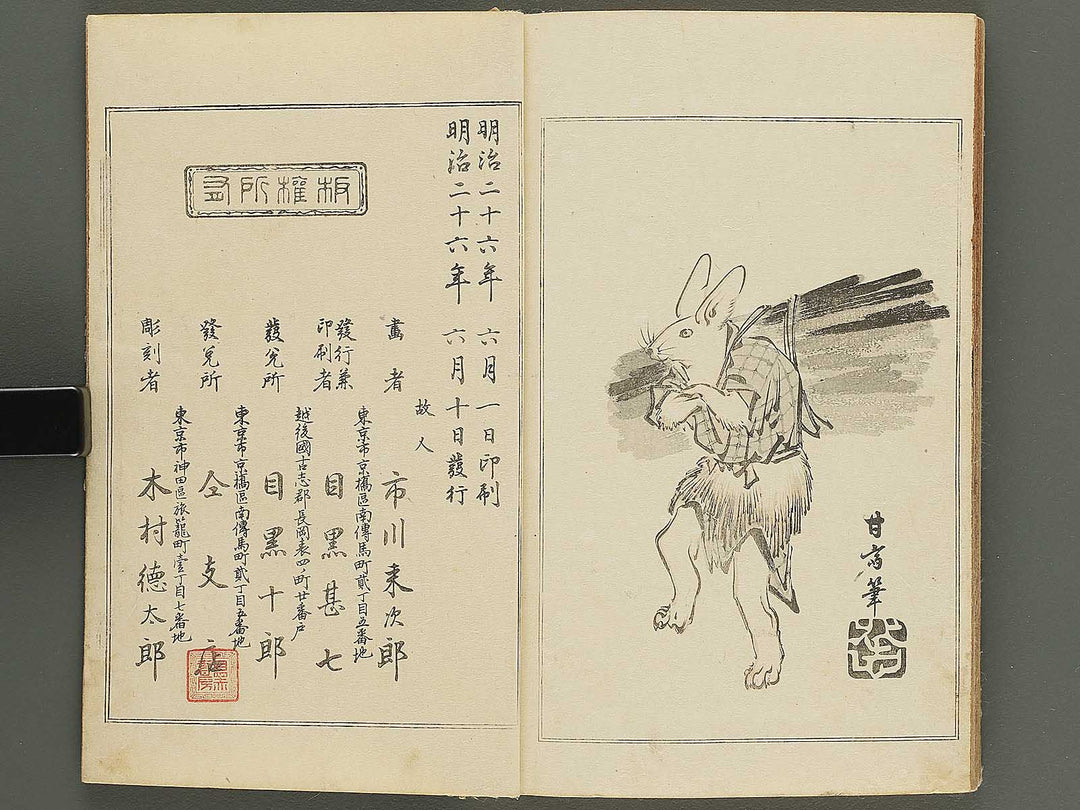 甘斎筆
明治二十六年 六月一日印刷
明治二十六年 六月十日發行
板權所有
故人
畫者 市川来次郎
東京市京橋區南傳馬町貳丁目五番地
發行兼
印刷者 目黒甚七
越後國古志郡長岡表四ノ町廿番戸
發兌所 目黒十郎
東京市京橋區南傳馬町貳丁目五番地
發兌所 仝支店
東京市神田區旅籠町壹丁目七番地
彫刻者 木村徳太郎